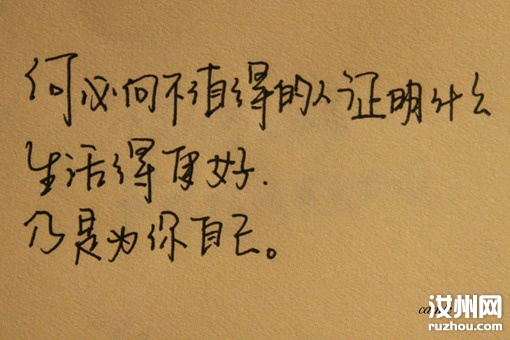 何必向不值得的人证明什么
生活得更好.
乃是为你自己。
汝州网
ruzhou.com